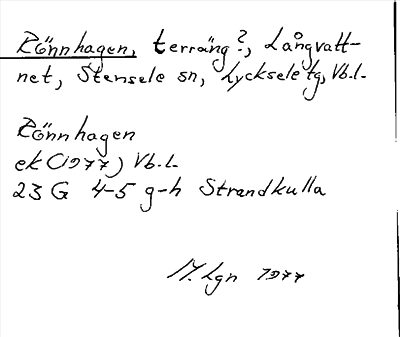 Rönnhagen, terräng?, Långvatt-
net, Stensele sn, Lycksele tg, Vb.l.
Rönnhagen
ek (1977) Vb.l.
23 G 4-5 g-h Strandkulla
M. Lgn 1977